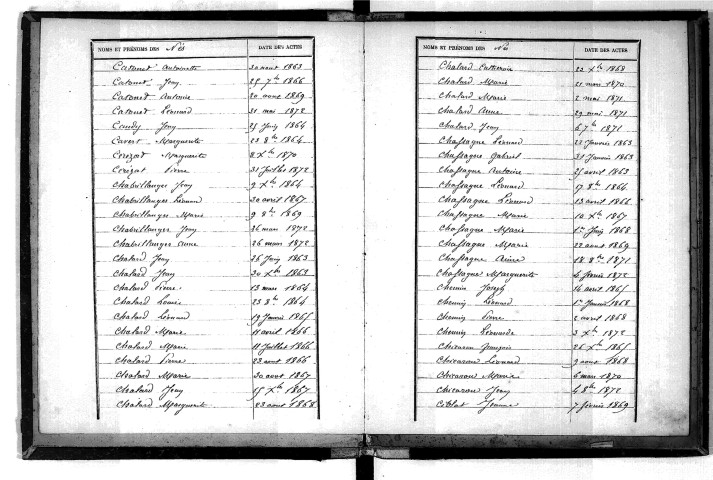 NOMS ET PRÉNOMS DES Nés DATE DES ACTES
Catonet Antoinette 30 aout 1863
Catonet Jeny 25 7bre 1866
Catonet Antoine 20 1869
Catonet Léonard 31 mai 1872
Jeny 25 Juin 1864
Marguerite 23 8bre 1864
Marguerite 8 Xbre 1870
Pierre 31 Juillet 1872
Chabrillanges Jeny 9 Xbre 1864
Chabrillanges Léonard 30 avril 1867
Chabrillanges Marie 9 8bre 1869
Chabrillanges Jeny 26 mars 1872
Chabrillanges Anne 26 mars 1872
Chalard Jeny 26 Juin 1863
Chalard Jeny 24 Xbre 1863
Chalard Pierre 13 mars 1864
Chalard Louise 23 8bre 1864
Chalard Léonard 19 Janvier 1865
Chalard Marie 11 avril 1866
Chalard Marie 11 Juillet 1866
Chalard Pierre 23 aout 1866
Chalard Marie 30 aout 1867
Chalard Jeny 15 Xbre 1867
Chalard Marguerite 23 aout 1868
NOMS ET PRÉNOMS DES Nés DATE DES ACTES
Chalard Catherine 22 Xbre 1868
Chalard Marie 21 mars 1870
Chalard Marie 2 mai 1871
Chalard Anne 29 mai 1871
Chalard Jeny 6 7bre 1871
Chassagne Léonard 23 Janvier 1863
Chassagne Gabriel 31 Janvier 1863
Chassagne Antoine 25 avril 1863
Chassagne Léonard 17 8bre 1864
Chassagne Léonard 13 avril 1866
Chassagne Marie 10 Xbre 1867
Chassagne Marie 1er Juin 1868
Chassagne Marie 22 aout 1869
Chassagne Aimée 18 8bre 1871
Chassagne Marguerite 4 février 1872
Chemin Joseph 16 avril 1865
Chemin Léonard 1er Janvier 1868
Chemin Pierre 2 avril 1868
Chemin Léonarde 3 Xbre 1872
Chicaron François 26 Xbre 1865
Chicaroux Léonard 9 aout 1868
Chicaroux Marie 6 mars 1870
Chicaroux Jeny 4 8bre 1872
Ciblat Jeanne 7 février 1869